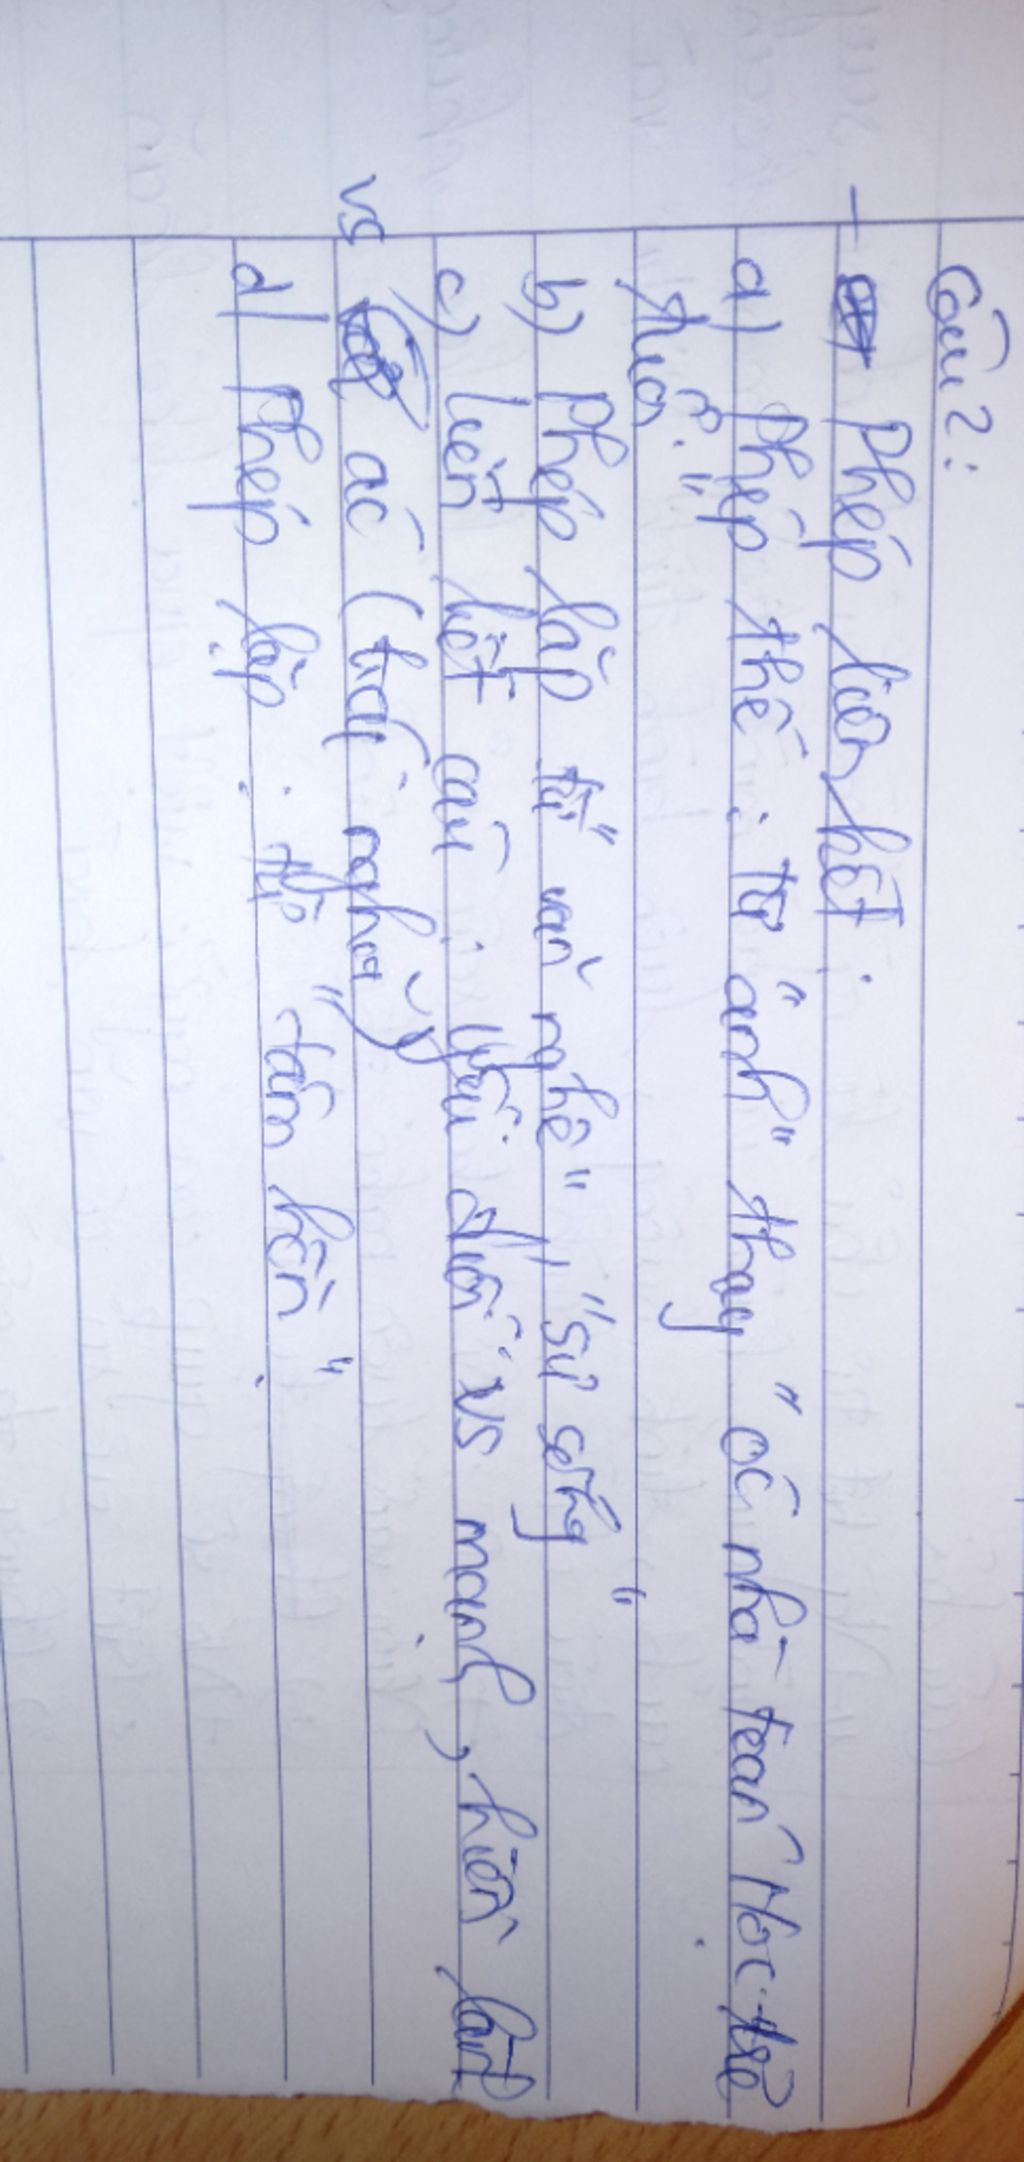 Câu 2:
- Phép liên kết:
a) Phép thế: từ "anh" thay "ốc nhà toán Học trẻ
tuổi."
b) Phép lặp từ "văn nghệ", "sự sống"
c) liên kết câu: yếu đuối vs mạnh, hiền lành
vs ác (trái nghĩa)
d) Phép lặp: từ "tâm hồn".